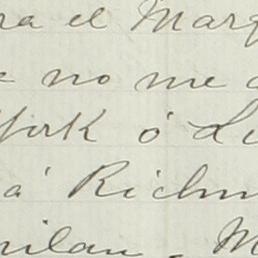 ra el Marq
no me
York ó Li
á Richm
milan. M